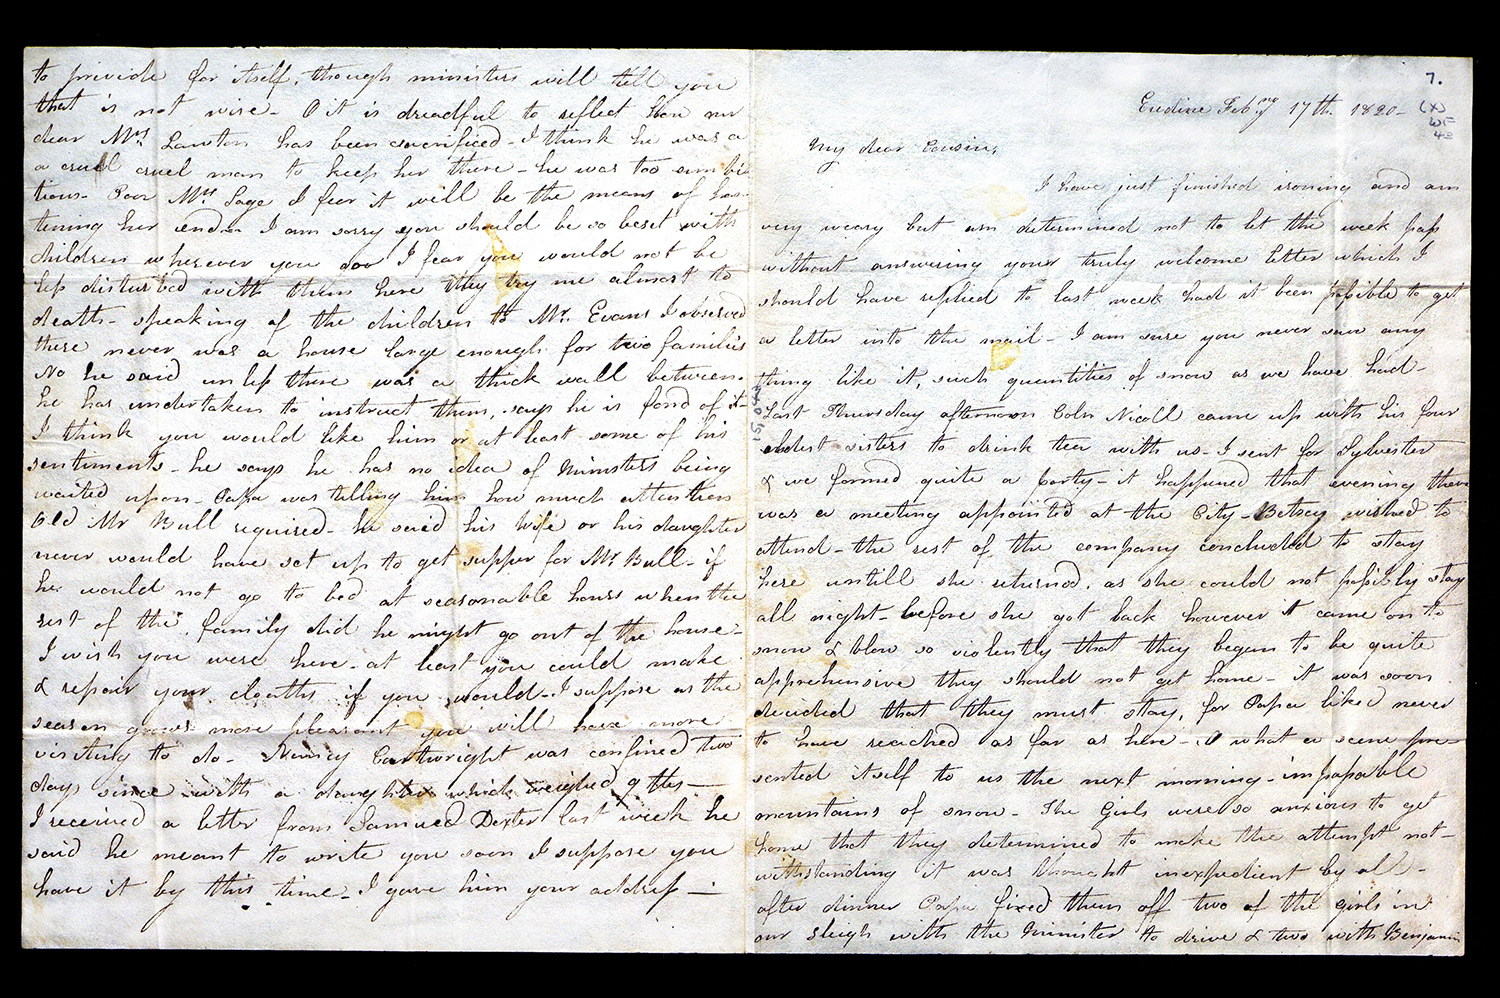 7.
Eudine Febry 17th. 1820-
(X)
WF
My dear Cousin,
I have just finished ironing and am
very weary but am determined not to let the week pass
without answering your truly welcome letter which I
should have replied to last week had it been possible to get
a letter into the mail - I am sure you never saw any
thing like it, such quantities of snow as we have had -
Last Thursday afternoon Coln Nicoll came up with his four
eldest sisters to drink tea with us - I sent for Sylvester
& we formed quite a party - it happened that evening there
was a meeting appointed at the City - Betsey wished to
attend - the rest of the company concluded to stay
here untill she returned, as she could not possibly stay
all night - before she got back however it came on to
snow & blow so violently that they began to be quite
apprehensive they should not get home - it was soon
decided that they must stay, for Papa liked never
to have reached as far as here - O what a scene pre-
sented itself to us the next morning - impassable
mountains of snow - The Girls were so anxious to get
home that they determined to make the attempt not-
withstanding it was thought inexpedient by all -
after dinner Papa fixed them off two of the girls in
our sleigh with the Minister to drive & two with Benjamin
to provide for itself, though ministers will tell you
that is not wise - O it is dreadful to reflect how our
dear Mrs Lawton has been sacrificed - I think he was a
a cruel cruel man to keep her there - he was too ambi
tious - Poor Mrs Sage I fear it will be the means of has-
tening her end - I am sorry you should be so beset with
children wherever you go I fear you would not be
less disturbed with them here they try me almost to
death - speaking of the children to Mr. Evans I observed
there never was a house large enough for two families
No he said unless there was a thick wall between -
he has undertaken to instruct them, says he is fond of it -
I think you would like him or at least some of his
sentiments - he says he has no idea of Ministers being
waited upon - Papa was telling him how much attention
Old Mr Bull required - he said his wife or his daughter
never would have set up to get supper for Mr Bull - if
he would not go to bed at seasonable hours when the
rest of the family did he might go out of the house -
I wish you were here - at least you could make
& repair your cloaths if you would - I suppose as the
season grows more pleasant you will have more
visiting to do - Nancy Cartwright was confined two
days since with a daughter which weighed 9 lbs -
I received a letter from Samuel Dexter last week he
said he meant to write you soon I suppose you
have it by this time - I gave him your address -